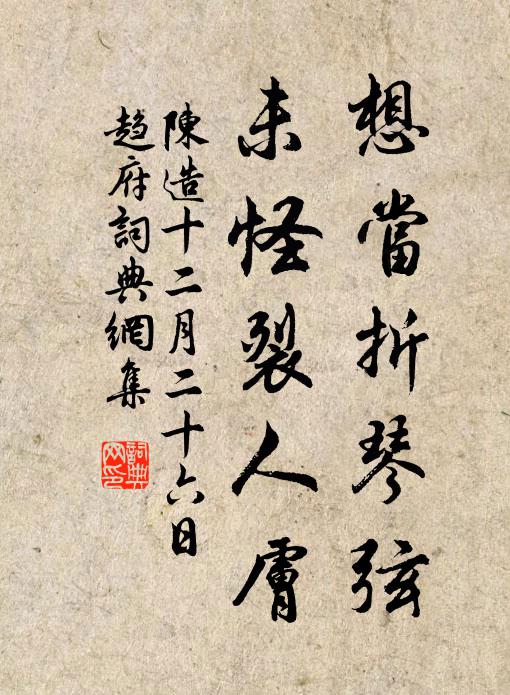 想當折琴弦
未怪裂人膚
陳造十二月二十六日
趙府詞典網集
詞典網印